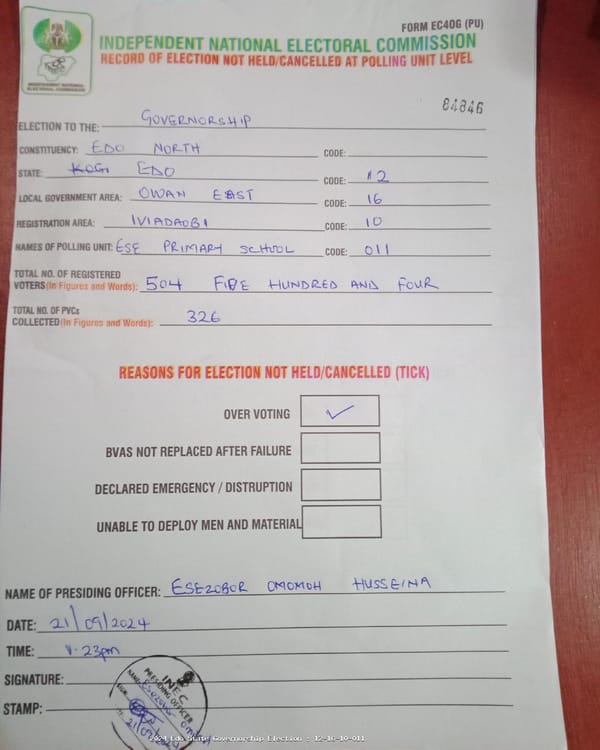 FORM EC40G (PU)
INDEPENDENT NATIONAL ELECTORAL COMMISSION
RECORD OF ELECTION NOT HELD/CANCELLED AT POLLING UNIT LEVEL
INDEPENDENT NATIONAL ELECTORAL COMMISSION
84846
ELECTION TO THE: GOVERNORSHIP
CONSTITUENCY: EDO NORTH CODE:
STATE: KOGI EDO CODE: 12
LOCAL GOVERNMENT AREA: OWAN EAST CODE: 16
REGISTRATION AREA: IVIADAOBI CODE: 10
NAMES OF POLLING UNIT: ESE PRIMARY SCHOOL CODE: 011
TOTAL NO. OF REGISTERED
VOTERS(In Figures and Words): 504 FIVE HUNDRED AND FOUR
TOTAL NO. OF PVCs
COLLECTED(In Figures and Words): 326
REASONS FOR ELECTION NOT HELD/CANCELLED (TICK)
OVER VOTING ✓
BVAS NOT REPLACED AFTER FAILURE
DECLARED EMERGENCY / DISTRUPTION
UNABLE TO DEPLOY MEN AND MATERIAL
NAME OF PRESIDING OFFICER: ESEZOBOR OMOMOH HUSSEINA
DATE: 21/09/2024
TIME: 23pm
SIGNATURE:
STAMP:
INEC
PRESIDING OFFICER
21/09/2024
2024 Edo State Governorship Election - 12-16-10-011